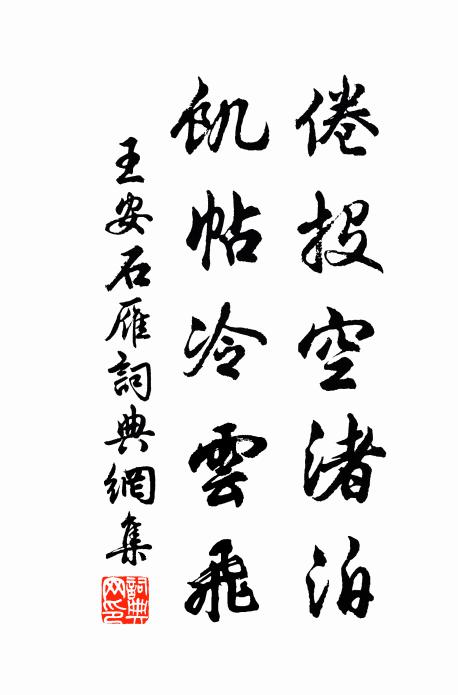 倦投空渚泊
飢帖冷雲飛
王安石雁詞典網集
詞典網印